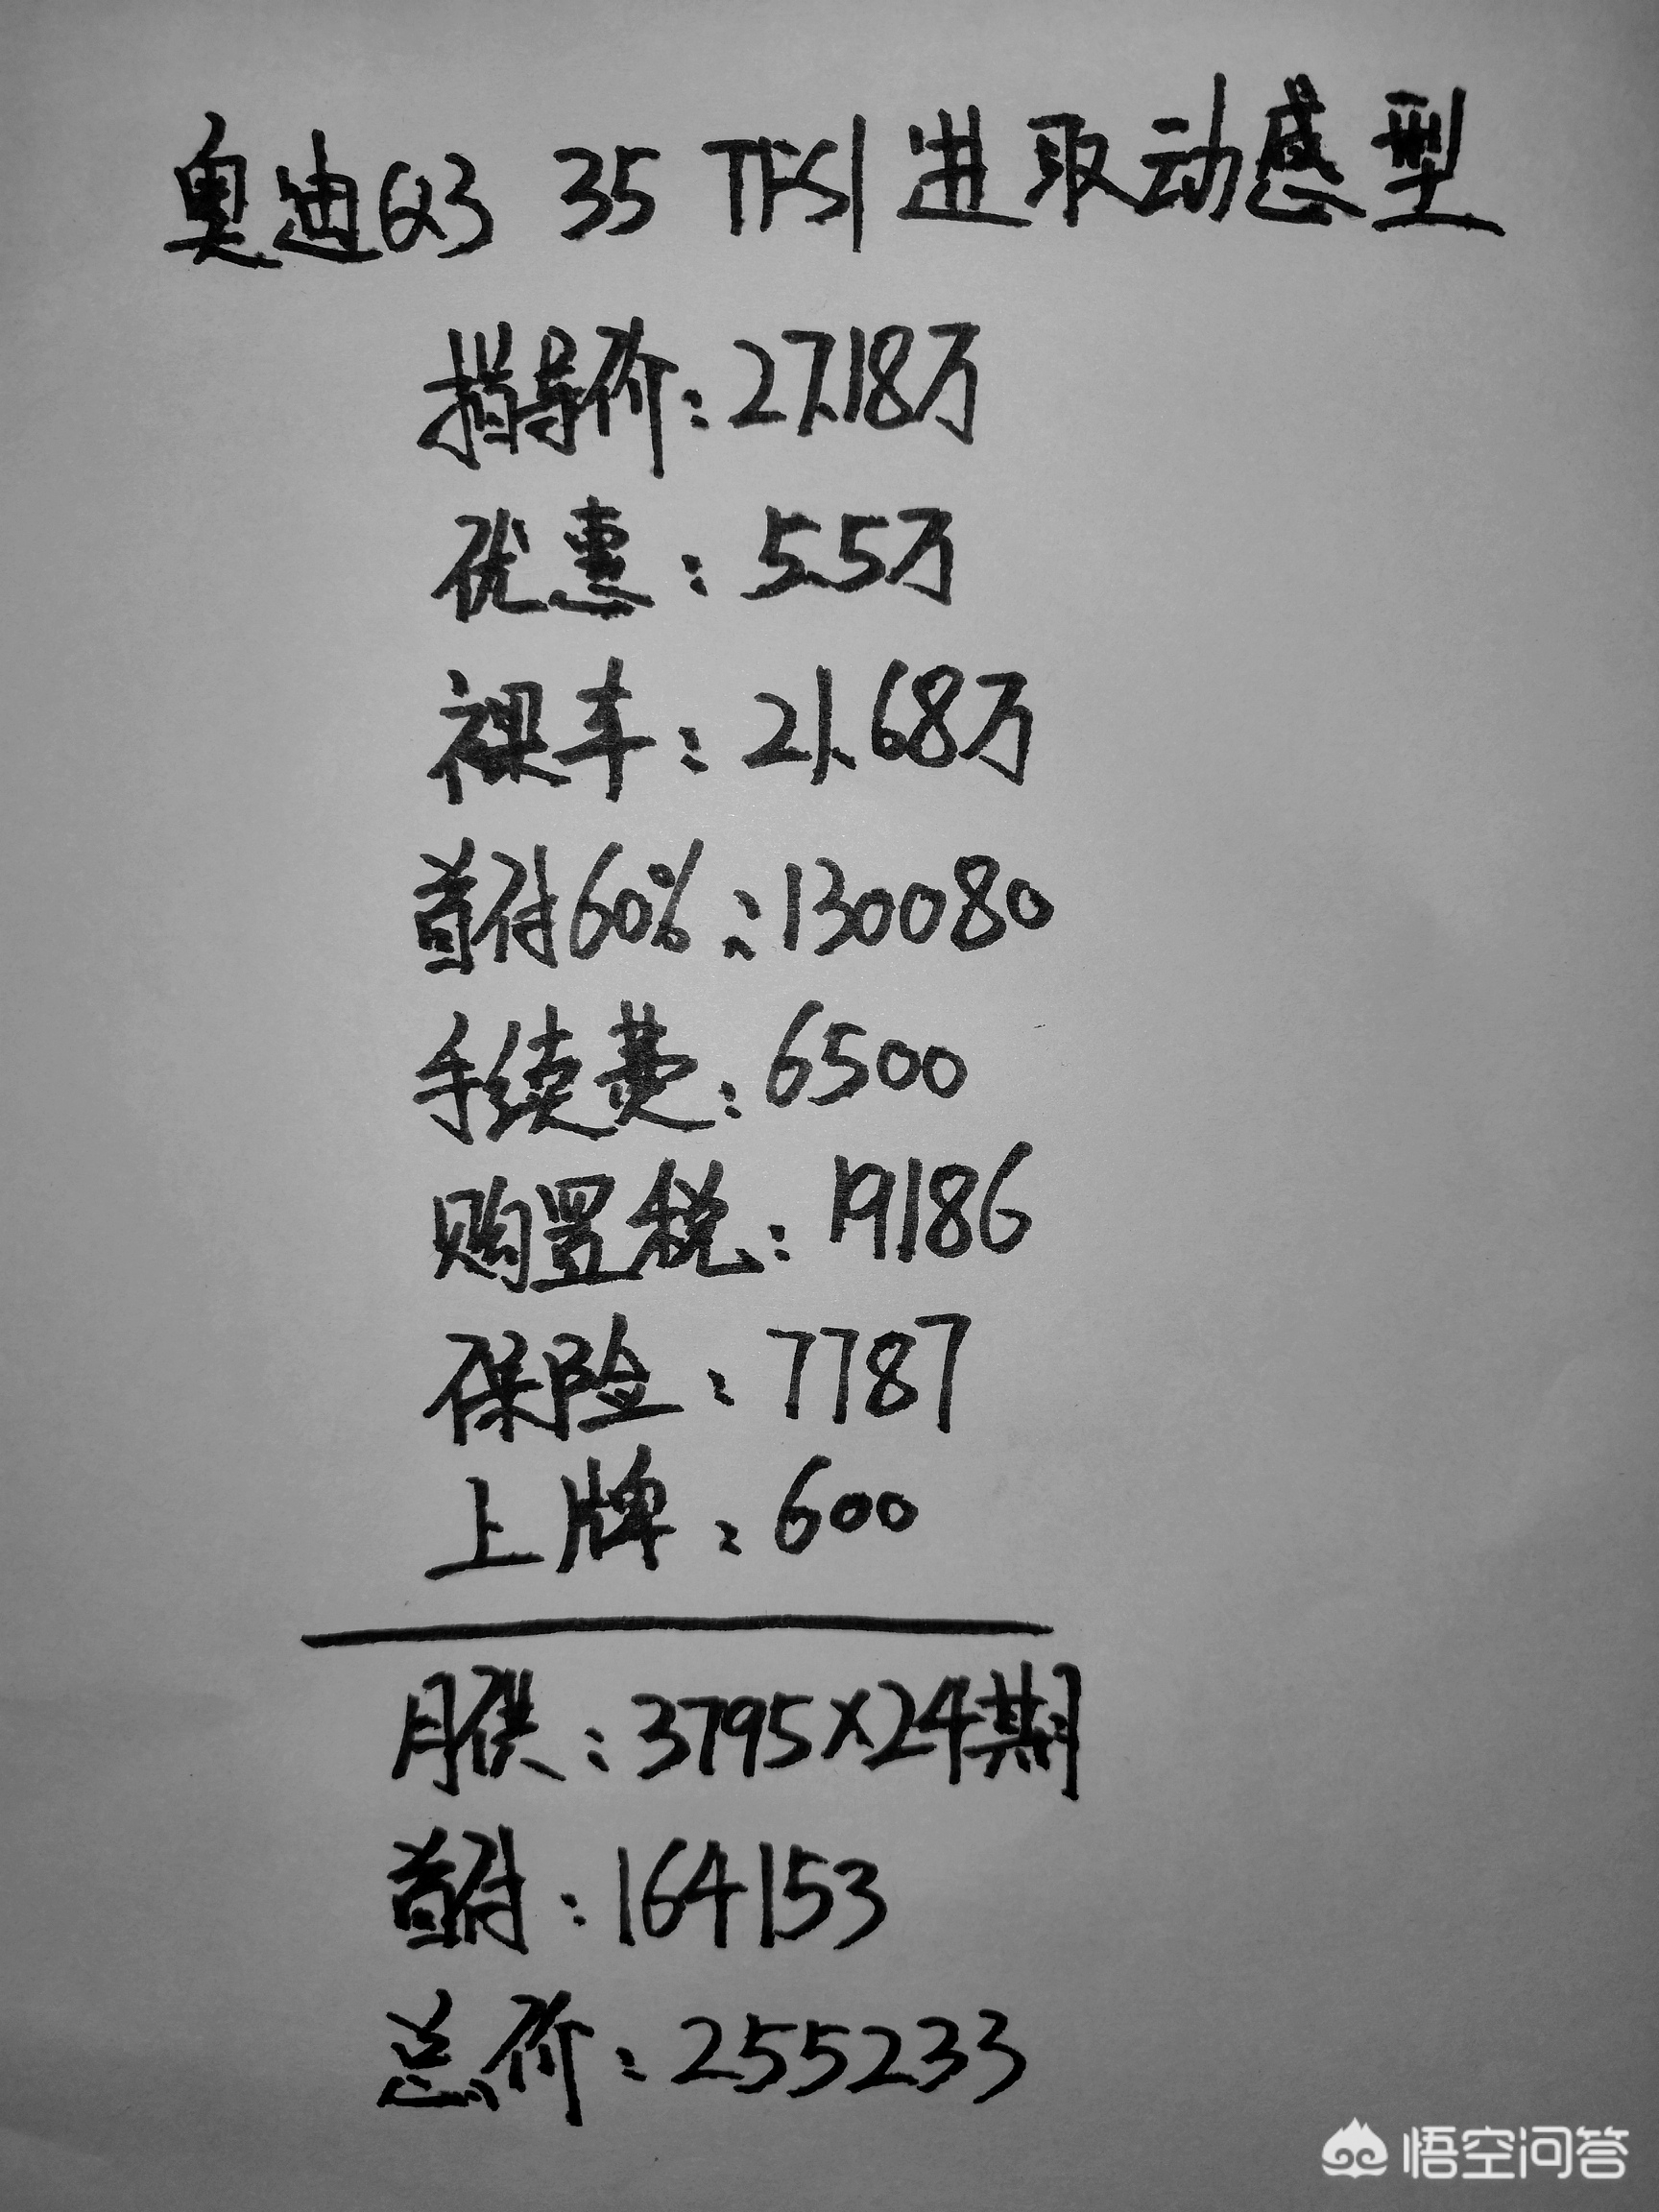 奥迪Q3 35 TFSI 进取动感型
指导价：27.18万
优惠：5.5万
裸车：21.68万
首付60%：130080
手续费：6500
购置税：19186
保险：7787
上牌：600
月供：3795×24期
首付：164153
总价：255233
悟空问答